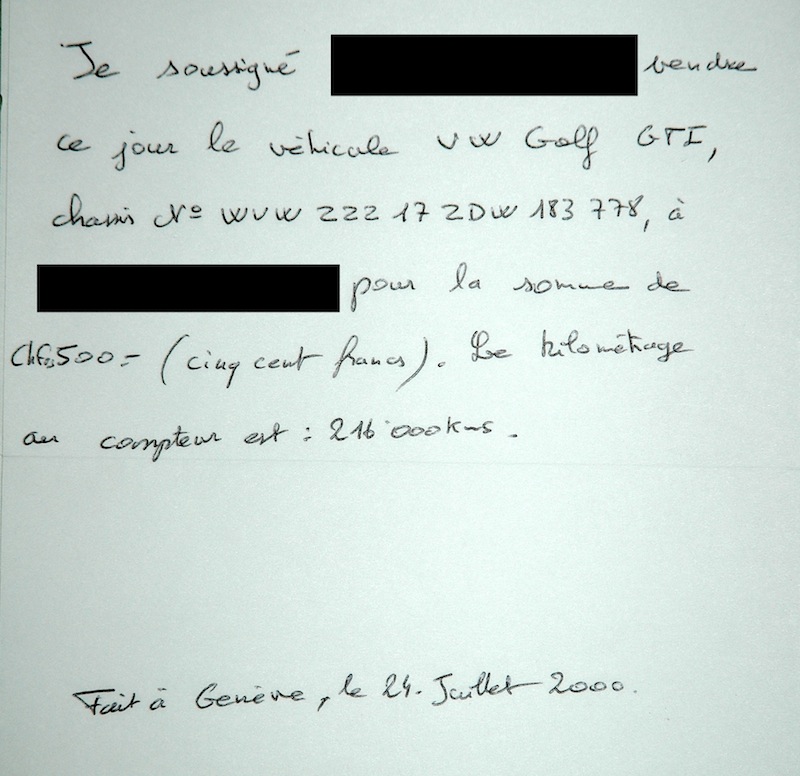 Je soussigné vendre
ce jour le véhicule VW Golf GTI,
chassis Nº WVW ZZZ 17 ZDW 183 778, à
pour la somme de
Chf.500.- (cinq cent francs). Le kilométrage
au compteur est : 216'000 kms.
Fait à Genève, le 24. Juillet 2000.